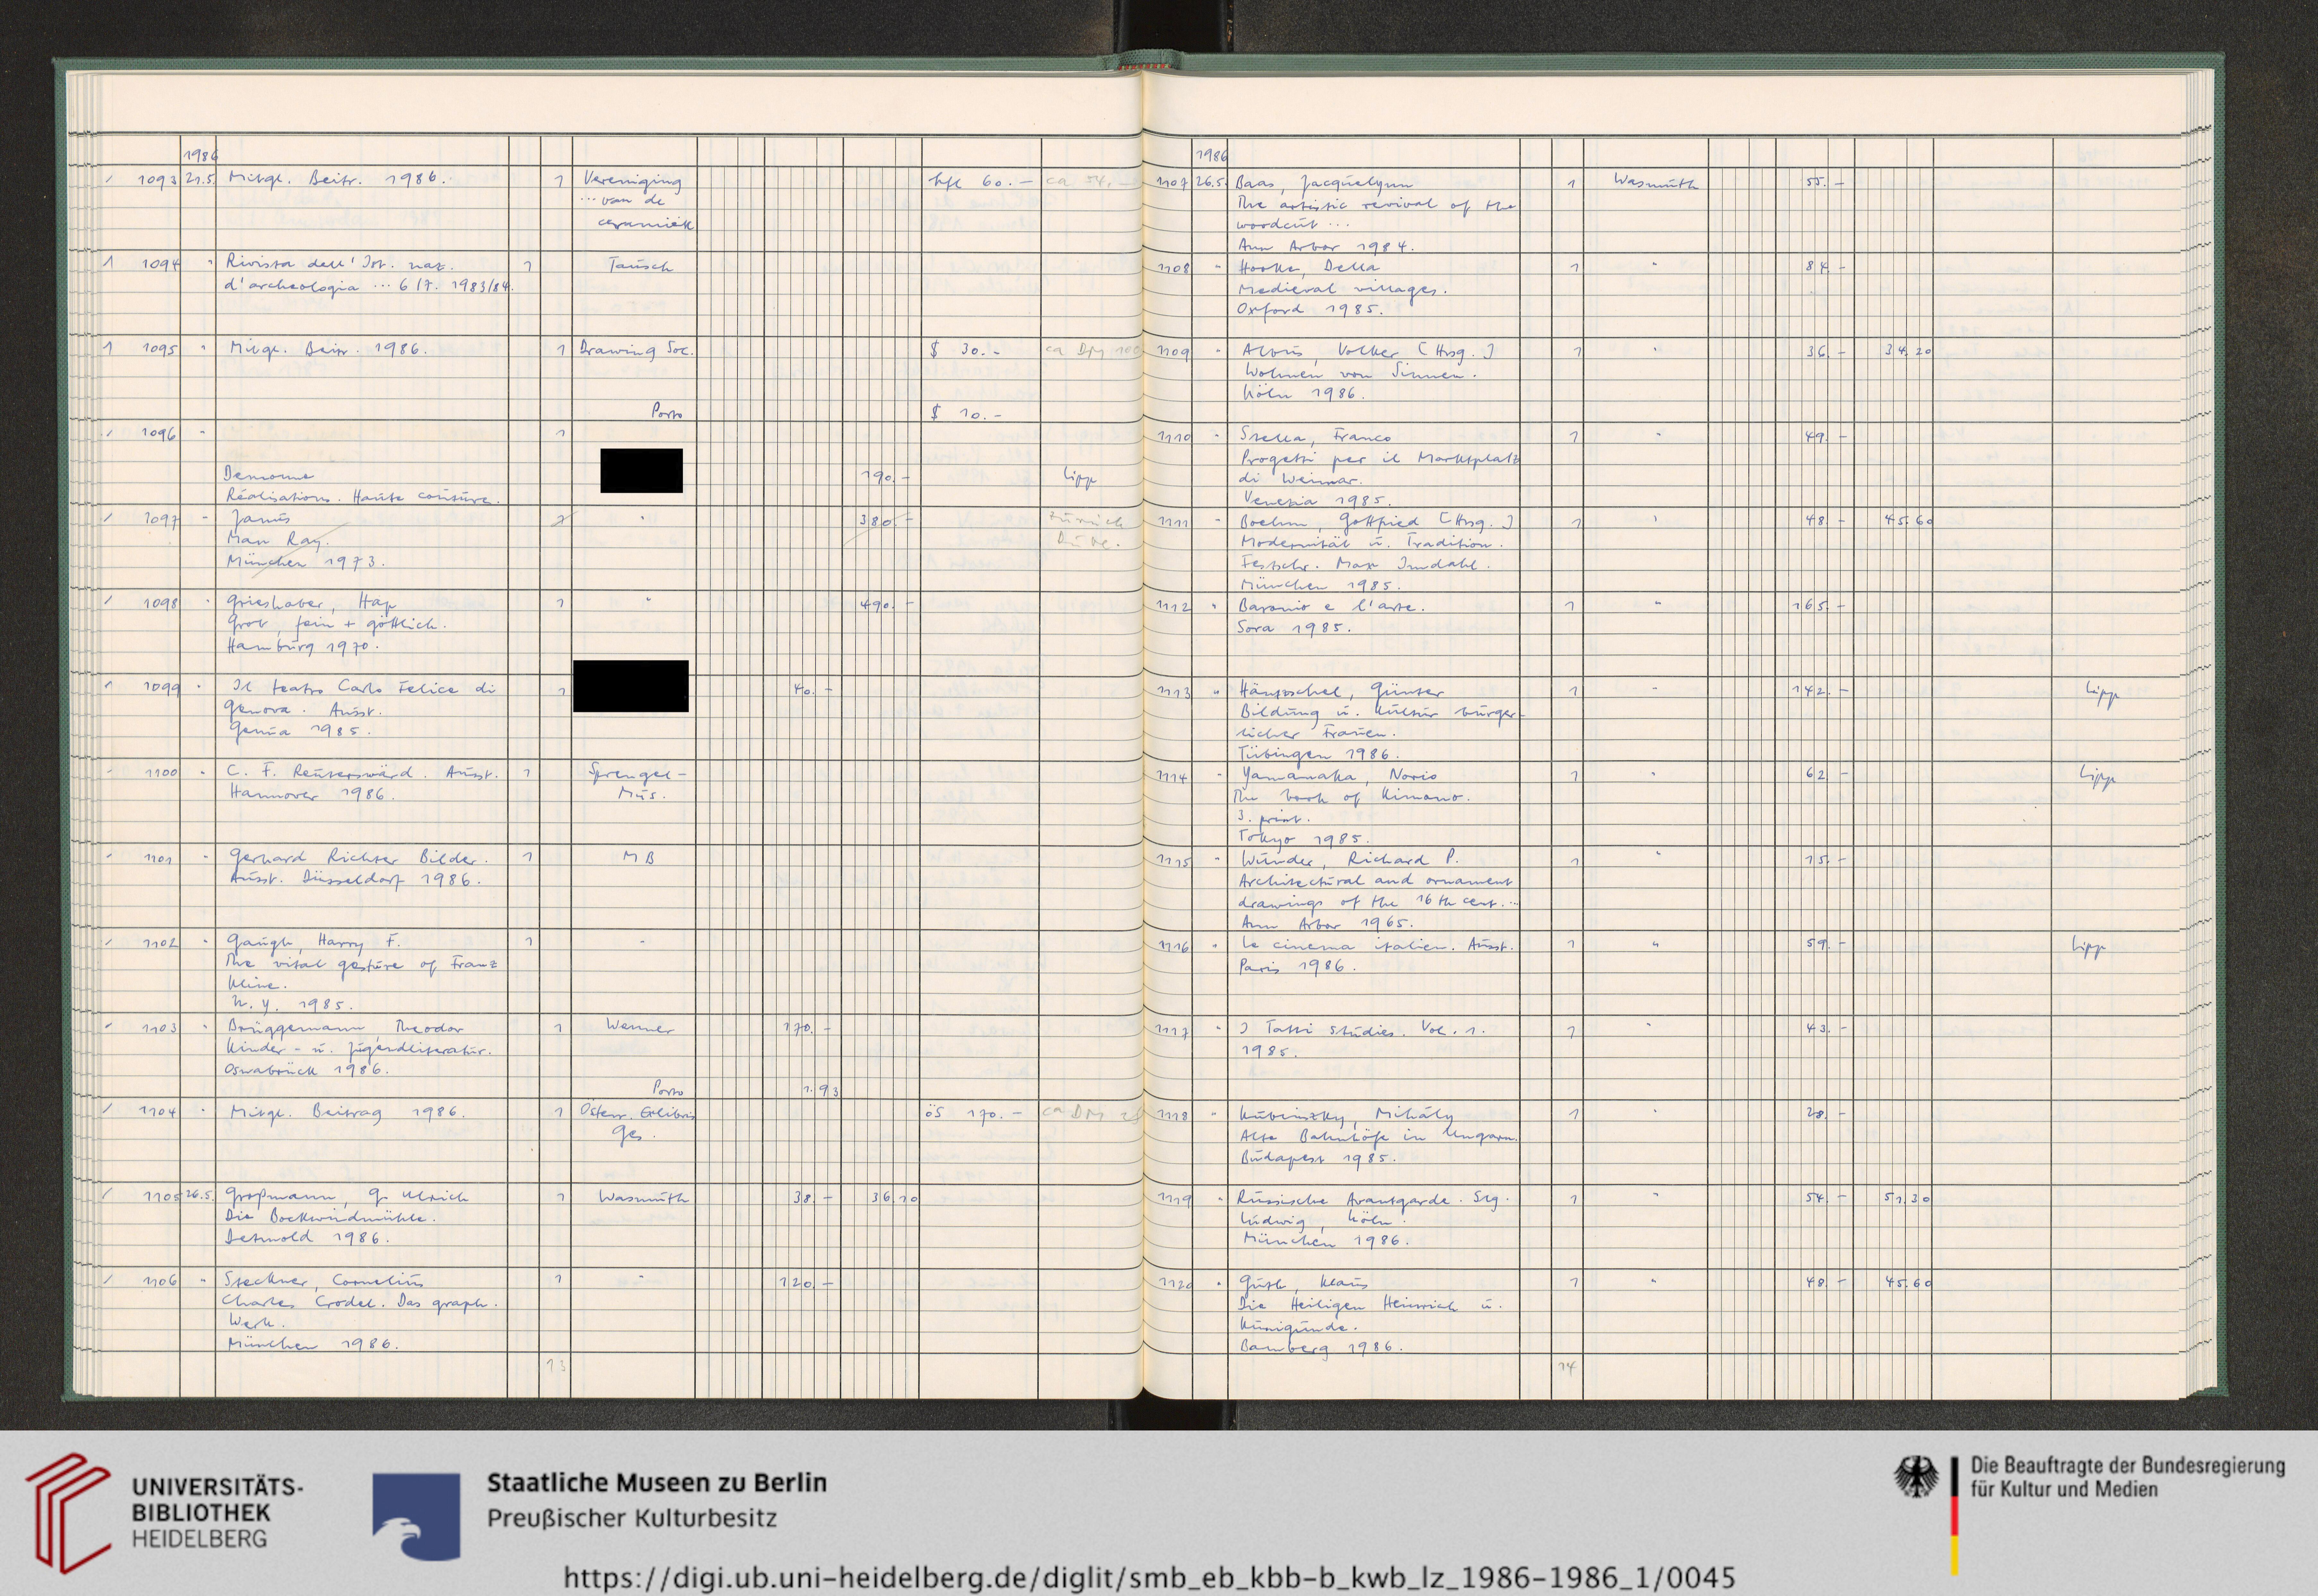 1986
1093 21.5. Mitgl. Beitr. 1986. 1 Vereniging hfl 60.- ca 54.-
... van de
ceramiek
1 1094 " Rivista dell' Ist. naz. 1 Tausch
d'archeologia ... 6/7. 1983/84.
1 1095 " Mitgl. Beitr. 1986. 1 Drawing Soc. $ 30.- ca DM 100
Porto $ 10.-
1096 " 1
190.- Lipp
Réalisations. Haute couture.
1097 " Janus 1 " 380.- zurück
Man Ray.
München 1973.
1098 " Grieshaber, Hap 1 " 490.-
Grob, fein + göttlich.
Hamburg 1970.
1099 " Il teatro Carlo Felice di 1 40.-
Genova. Ausst.
Genua 1985.
1100 " C. F. Reuterswärd. Ausst. 1 Sprengel-
Hannover 1986. Mus.
1101 " Gerhard Richter Bilder. 1 MB
Ausst. Düsseldorf 1986.
1102 " Gaugh, Harry F. 1 "
The vital gesture of Franz
Kline.
N.Y. 1985.
1103 " Brüggemann, Theodor 1 Wenner 170.-
Kinder- u. Jugendliteratur.
Osnabrück 1986.
Porto 1.93
1104 " Mitgl. Beitrag 1986. 1 Österr. Exlibris öS 170.- ca DM
Ges.
1105 26.5. Großmann, G. Ulrich 1 Wasmuth 38.- 36.10
Die Bockwindmühle.
Detmold 1986.
1106 " Steckner, Cornelius 1 " 120.-
Charles Crodel. Das graph.
Werk.
München 1986.
13
1986
1107 26.5. Baas, Jacquelynn 1 Wasmuth 55.-
The artistic revival of the
woodcut ...
Ann Arbor 1984.
1108 " Hooke, Della 1 " 84.-
Medieval villages.
Oxford 1985.
1109 " Albus, Volker [Hrsg.] 1 " 36.- 34.20
Wohnen von Sinnen.
Köln 1986.
1110 " Stella, Franco 1 " 49.-
Progetti per il Marktplatz
di Weimar.
Venezia 1985.
1111 " Boehm, Gottfried [Hrsg.] 1 " 48.- 45.60
Modernität u. Tradition.
Festschr. Max Imdahl.
München 1985.
1112 " Baronio e l'arte. 1 " 165.-
Sora 1985.
1113 " Häntzschel, Günter 1 " 142.- Lipp
Bildung u. Kultur bürger-
licher Frauen.
Tübingen 1986.
1114 " Yamanaka, Norio 1 " 62.- Lipp
The book of Kimono.
3. print.
Tokyo 1985.
1115 " Wunder, Richard P. 1 " 15.-
Architectural and ornament
drawings of the 16th cent. ...
Ann Arbor 1965.
1116 " Le cinema italien. Ausst. 1 " 59.- Lipp
Paris 1986.
1117 " I Tatti studies. Vol. 1. 1 " 43.-
1985.
1118 " Kubinszky, Mihály 1 " 28.-
Alte Bahnhöfe in Ungarn.
Budapest 1985.
1119 " Russische Avantgarde. Slg. 1 " 54.- 51.30
Ludwig, Köln.
München 1986.
1120 " Guth, Klaus 1 " 48.- 45.60
Die Heiligen Heinrich u.
Kunigunde.
Bamberg 1986.
14
UNIVERSITÄTS-
BIBLIOTHEK
HEIDELBERG
Staatliche Museen zu Berlin
Preußischer Kulturbesitz
Die Beauftragte der Bundesregierung
für Kultur und Medien
https://digi.ub.uni-heidelberg.de/diglit/smb_eb_kbb-b_kwb_lz_1986-1986_1/0045